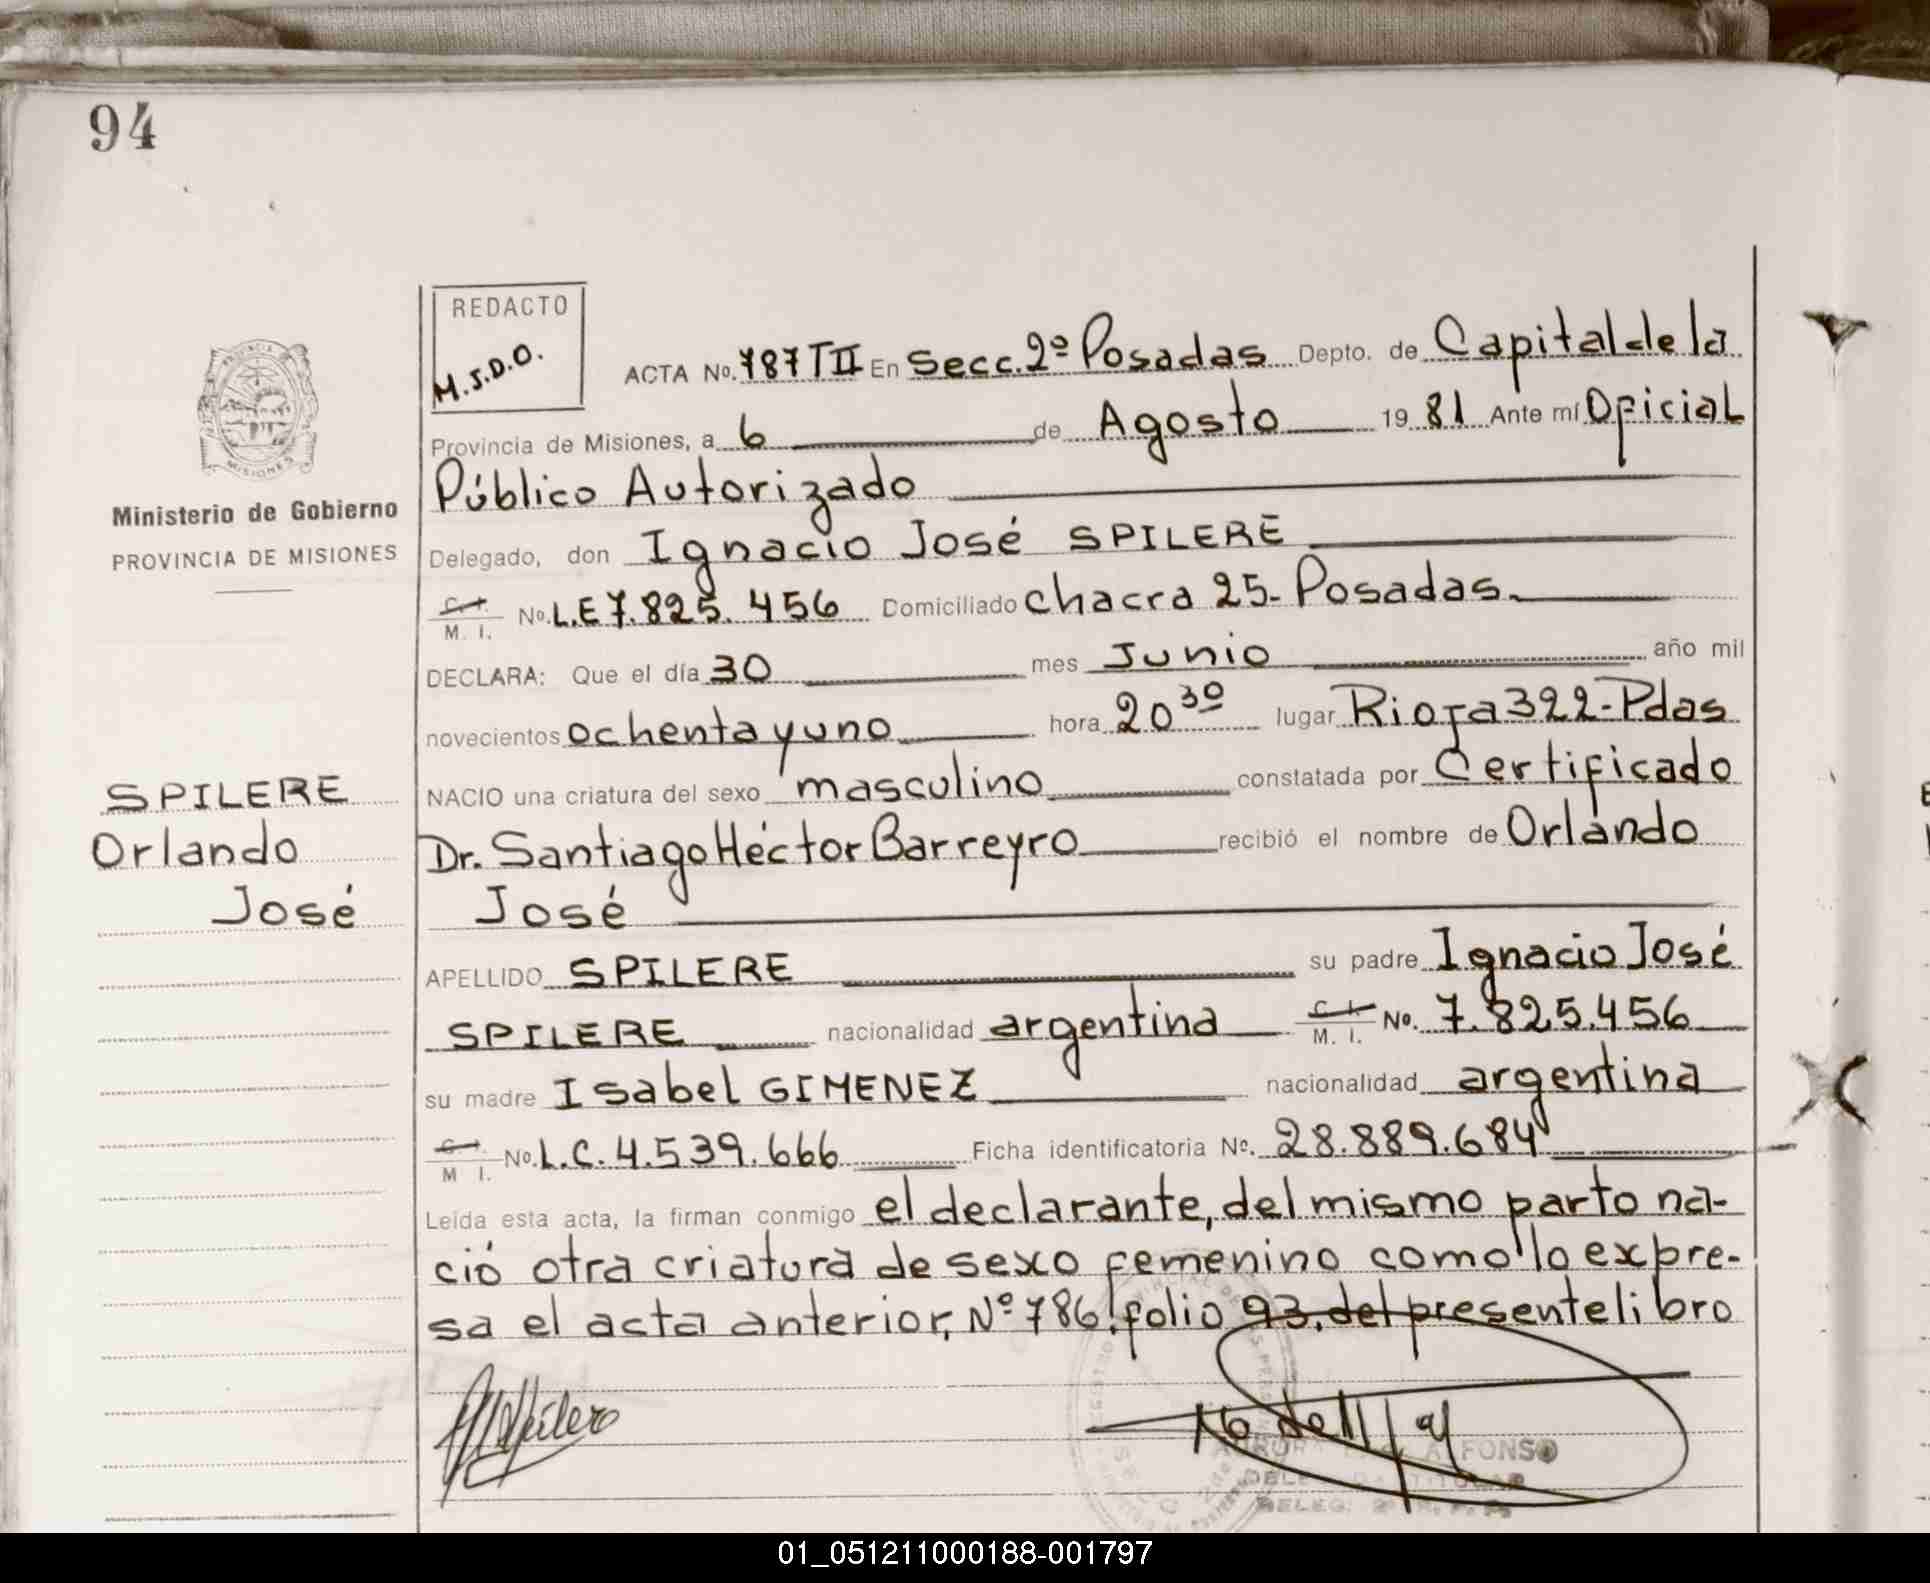 94
REDACTO
M.S.D.O.
ACTA No. 787 TII En Secc. 2º Posadas Depto. de Capital de la
Provincia de Misiones, a 6 de Agosto 19 81 Ante mí Oficial
Público Autorizado
Delegado, don Ignacio José SPILERE
C.I. M. I. No. L.E 7.825.456 Domiciliado chacra 25- Posadas.
DECLARA: Que el día 30 mes Junio año mil
novecientos ochenta y uno hora 20 30 lugar Rioja 322-Pdas
NACIO una criatura del sexo masculino constatada por Certificado
Dr. Santiago Héctor Barreyro recibió el nombre de Orlando
José
APELLIDO SPILERE su padre Ignacio José
SPILERE nacionalidad argentina C.I. M. I. No. 7.825.456
su madre Isabel GIMENEZ nacionalidad argentina
C.I. M I. No. L.C. 4.539.666 Ficha identificatoria No. 28.889.684
Leída esta acta, la firman conmigo el declarante, del mismo parto na-
ció otra criatura de sexo femenino como lo expre-
sa el acta anterior, Nº 786, folio 93, del presente libro
PROVINCIA
MISIONES
Ministerio de Gobierno
PROVINCIA DE MISIONES
SPILERE
Orlando
José
ALFONSO
TITULAR
DELEG. 2ª
01_051211000188-001797